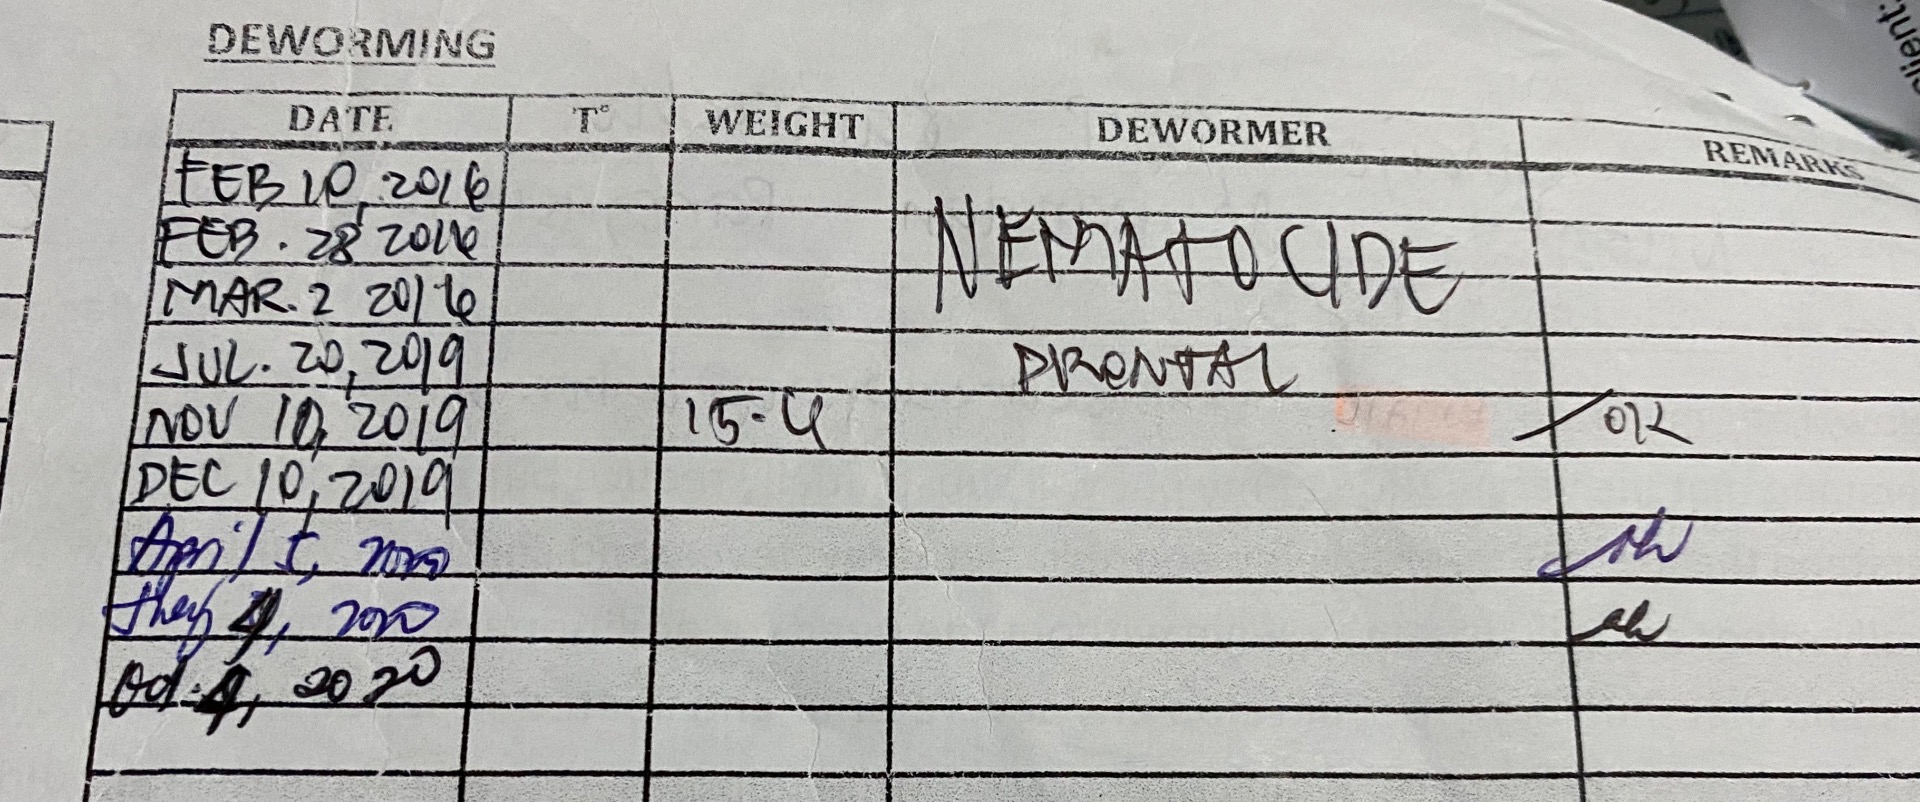 DEWORMING
DATE T° WEIGHT DEWORMER REMARKS
FEB 10, 2016
FEB. 28 2016
NEMATOCIDE
MAR. 2 2016
JUL. 20, 2019 PRONTAL
NOV 10, 2019 15.4 OK
DEC 10, 2019
April 5, 2020 ok
4, 2020 ok
Oct. 4, 2020